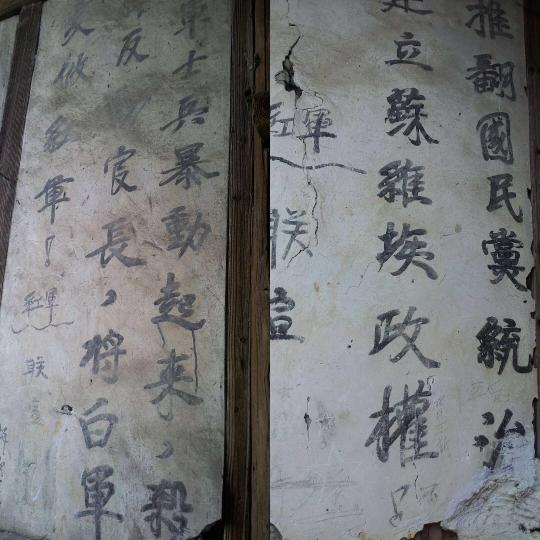 軍士兵暴動起来，殺
反官長，将白軍
做紅軍！
紅軍
联宣
推翻國民黨統治
建立蘇維埃政權！
紅軍
联宣